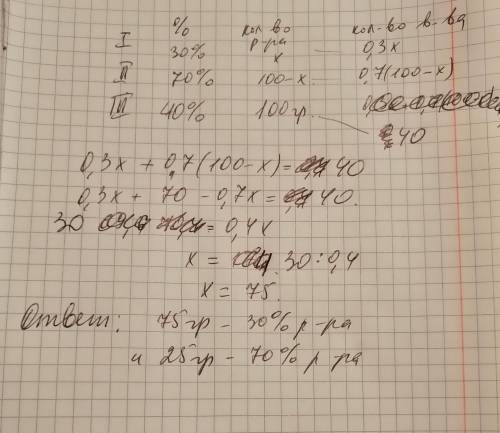 % кол-во р-ра кол-во в-ва
I 30% x 0,3x
II 70% 100-x 0,7(100-x)
III 40% 100гр. 40
0,3x + 0,7(100-x) = 40
0,3x + 70 - 0,7x = 40.
30 = 0,4x
x = 30:0,4
x = 75.
Ответ: 75гр - 30% р-ра
и 25гр - 70% р-ра